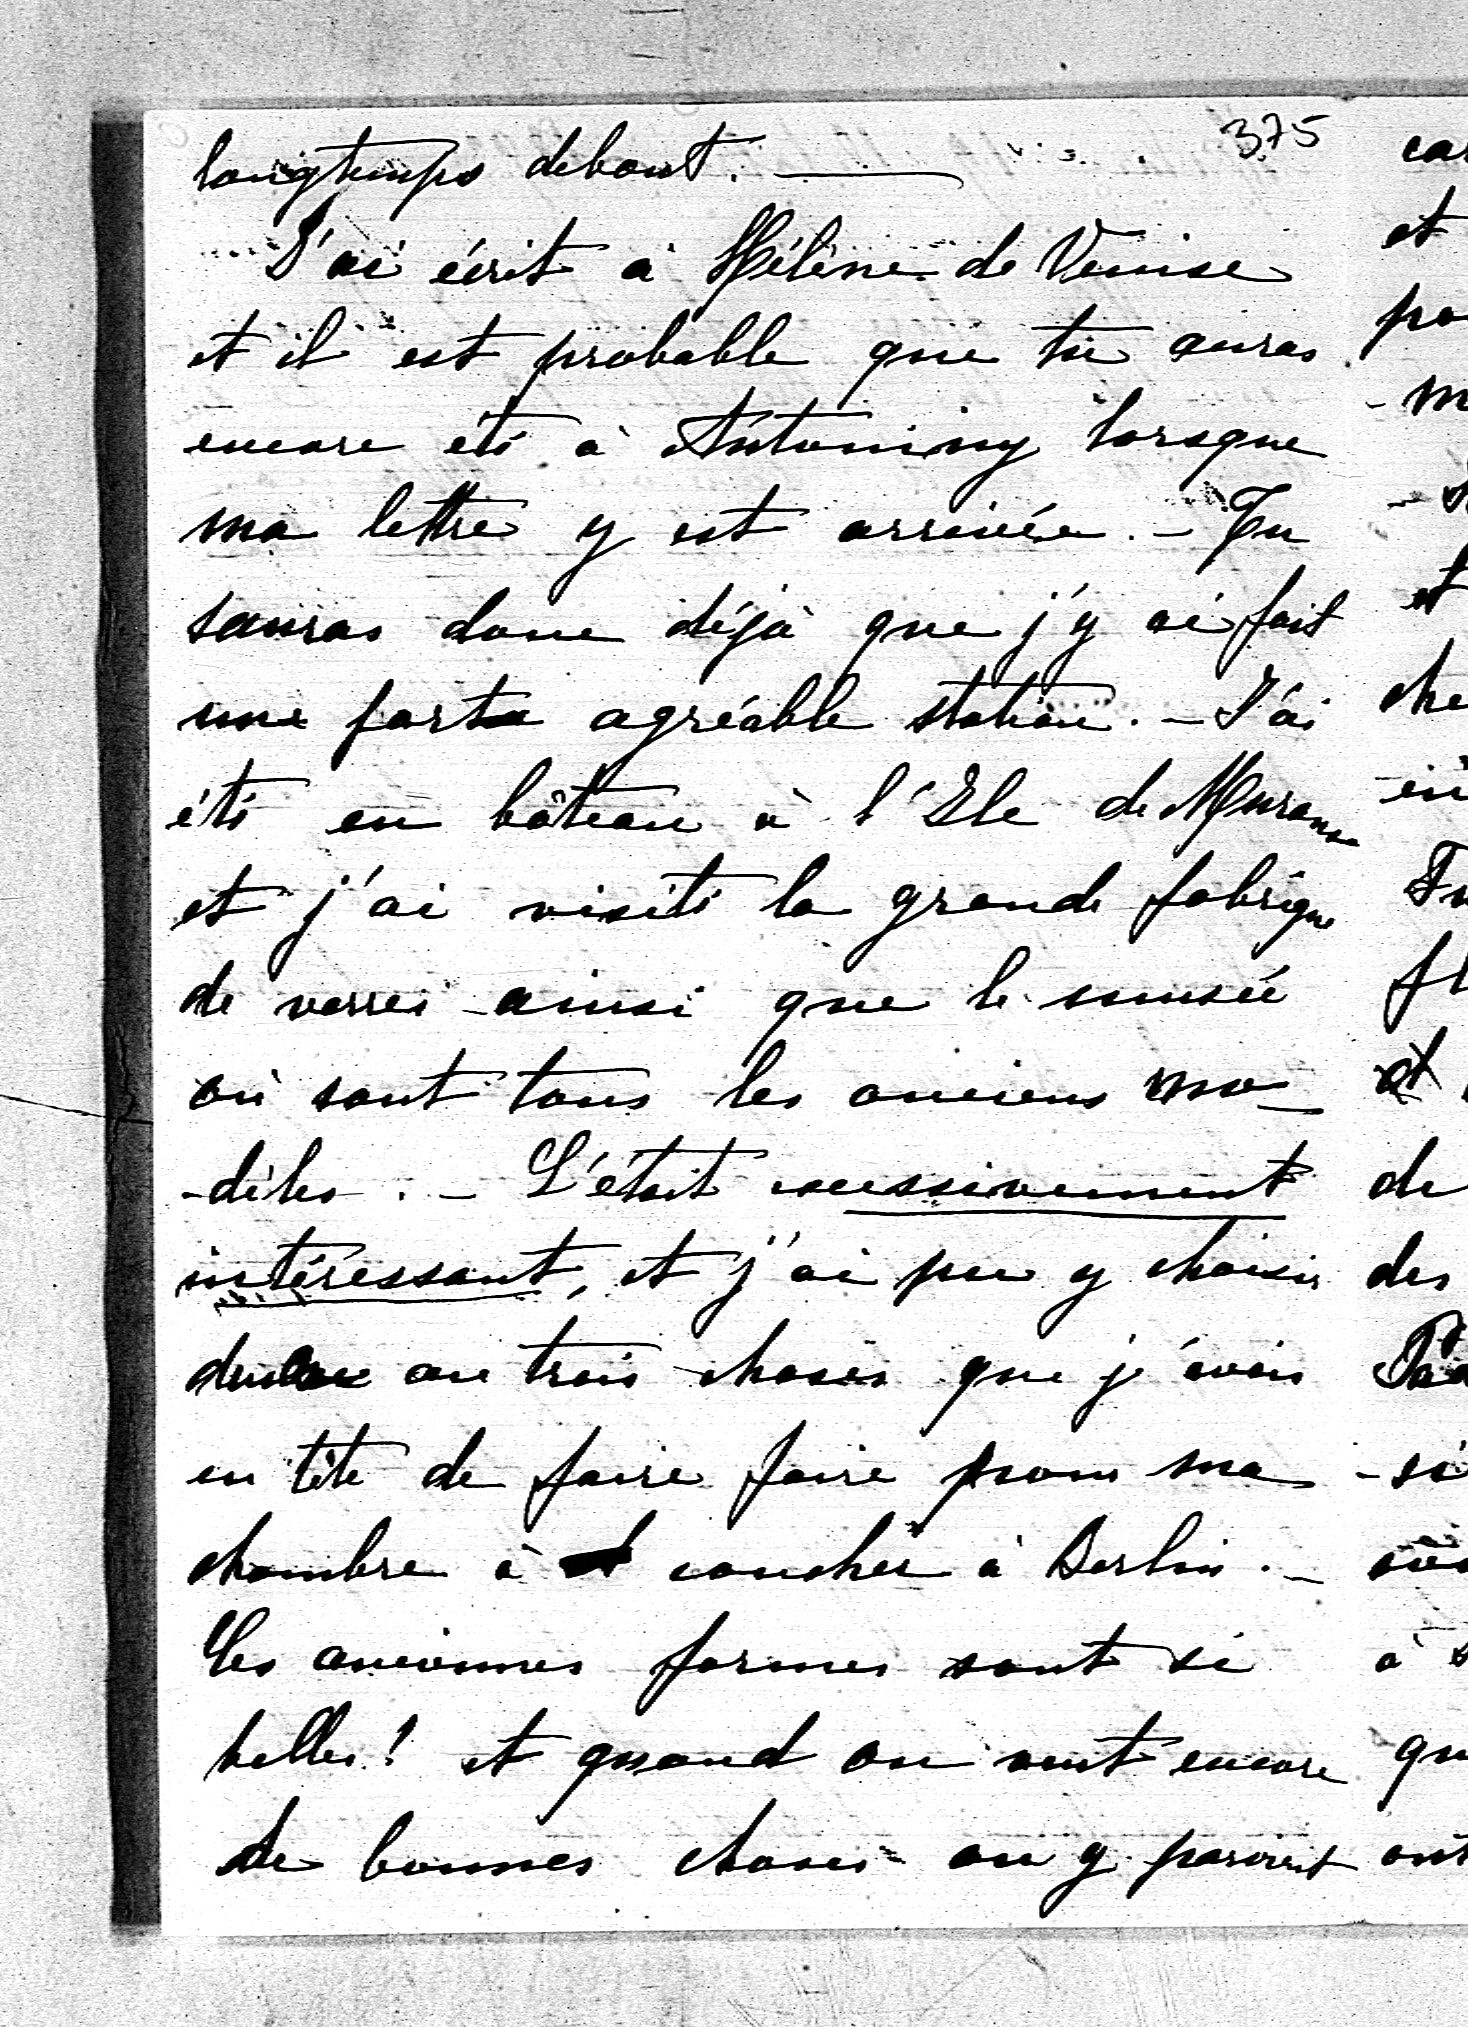 375
longtemps debout. —
J'ai écrit à Hélène de Venise
et il est probable que tu auras
encore été à Antoniny lorsque
ma lettre y est arrivée. - Tu
sauras donc déjà que j'y ai fait
une forte agréable station. - J'ai
été en bâteau à l'Ile de Murano
et j'ai visité la grande fabrique
de verres ainsi que le musée
où sont tous les anciens mo-
-dèles. - C'était excessivement
intéressant, et j'ai pu y choisir
deux ou trois choses que j'avais
en tête de faire faire pour ma
chambre à coucher à Berlin. -
Les anciennes formes sont si
belles! et quand on veut encore
de bonnes choses on y parvient